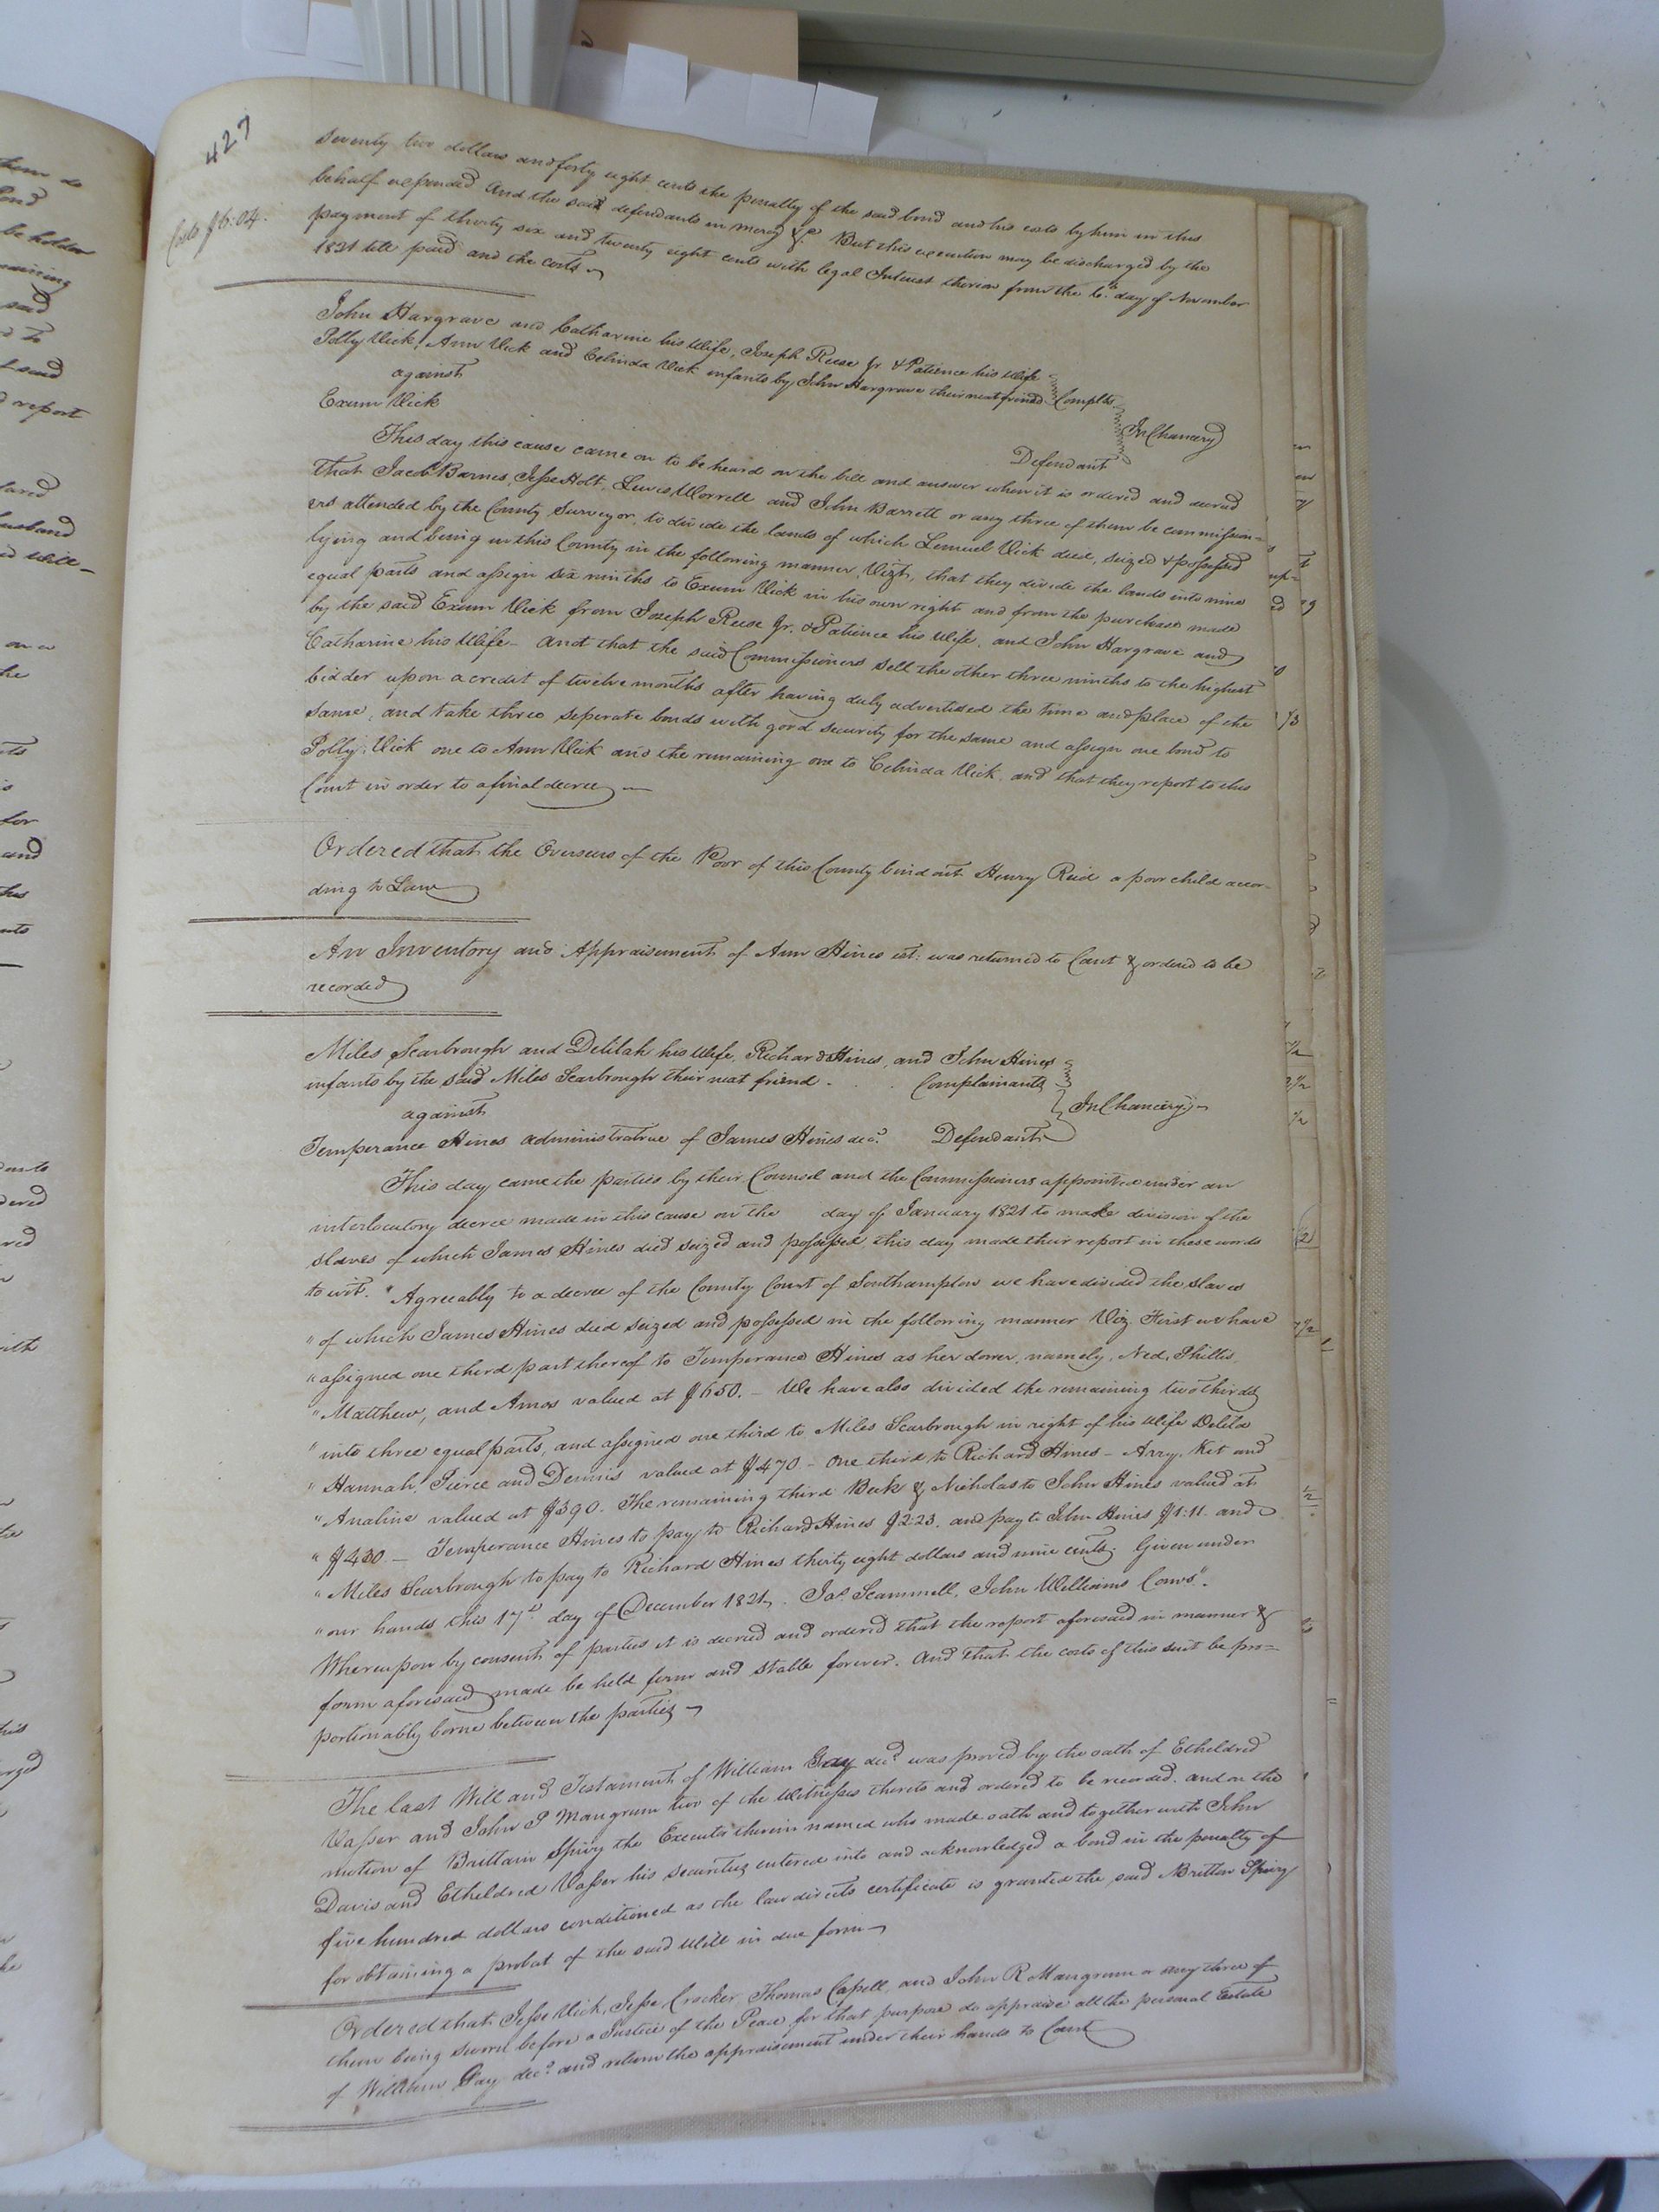 427
seventy two dollars and forty eight cents the penalty of the said bond and his costs by him in this
Costs $6:04.
behalf expended And the said defendants in mercy &c But this execution may be discharged by the
payment of thirty six and twenty eight cents with legal Interest thereon from the 6th day of November
1821 till paid and the costs
John Hargrave and Catharine his Wife, Joseph Reese Jr & Patience his Wife
Polly Vick, Ann Vick and Celinda Vick infants by John Hargrave their next friend Complts
against
In Chancery
Exum Vick
Defendant
This day this cause came on to be heard on the bill and answer when it is ordered and decreed
that Jacob Barnes, Jesse Holt, Lewis Worrell and John Barrett or any three of them be commission=
ers attended by the County Surveyor, to divide the lands of which Lemuel Vick died, seized & possessed
lying and being in this County in the following manner, Vizt, that they divide the lands into nine
equal parts and assign six ninths to Exum Vick in his own right and from the purchase made
by the said Exum Vick from Joseph Reese Jr. & Patience his Wife, and John Hargrave and
Catharine his Wife - And that the said Commissioners sell the other three ninths to the highest
bidder upon a credit of twelve months after having duly advertised the time and place of the
same, and take three seperate bonds with good security for the same and assign one bond to
Polly Vick one to Ann Vick and the remaining one to Celinda Vick, and that they report to this
Court in order to a final decree
Ordered that the Overseers of the Poor of this County bind out Henry Reid a poor child accor-
ding to Law
An Inventory and Appraisement of Ann Hines est: was returned to Court & ordered to be
recorded
Miles Scarbrough and Delilah his Wife, Richard Hines, and John Hines
infants by the said Miles Scarbrough their next friend - Complainants
against
In Chancery
Temperance Hines administratrue of James Hines decd. Defendant
This day came the parties by their Counsel and the Commissioners appointed under an
interlocutory decree made in this cause on the day of January 1821 to make division of the
slaves of which James Hines died seized and possessed, this day made their report in these words
to wit. "Agreeably to a decree of the County Court of Southampton we have divided the slaves
"of which James Hines died seized and possessed in the following manner Viz First we have
"assigned one third part thereof to Temperance Hines as her dower, namely, Ned, Phillis,
"Matthew, and Amos valued at $650. - We have also divided the remaining two thirds
"into three equal parts, and assigned one third to Miles Scarbrough in right of his Wife Delila
"Hannah, Pierce and Dennis valued at $470 - One third to Richard Hines - Arry, Kit and
"Analine valued at $390. The remaining third Beck & Nicholas to John Hines valued at
"$430. - Temperance Hines to pay to Richard Hines $2:23. and pay to John Hines $1:11. and
"Miles Scarbrough to pay to Richard Hines thirty eight dollars and nine cents. Given under
"our hands this 17th day of December 1821. Jas. Scammell, John Williams Coms".
Whereupon by consent of parties it is decreed and ordered that the report aforesaid in manner &
form aforesaid made be held firm and stable forever. And that the costs of this suit be pro=
portionably borne between the parties
The last Will and Testament of William Gay decd. was proved by the oath of Etheldred
Vasser and John P Mangrum two of the Witnesses thereto and ordered to be recorded. and on the
motion of Brittain Spivy the Executor therein named who made oath and together with John
Davis and Etheldred Vasser his securities entered into and acknowledged a bond in the penalty of
five hundred dollars conditioned as the law directs certificate is granted the said Britton Spivy
for obtaining a probat of the said Will in due form
Ordered that Jesse Vick, Jesse Crocker, Thomas Capell, and John R Mangrum or any three of
them being sworn before a Justice of the Peace for that purpose do appraise all the personal Estate
of William Gay decd. and return the appraisement under their hands to Court